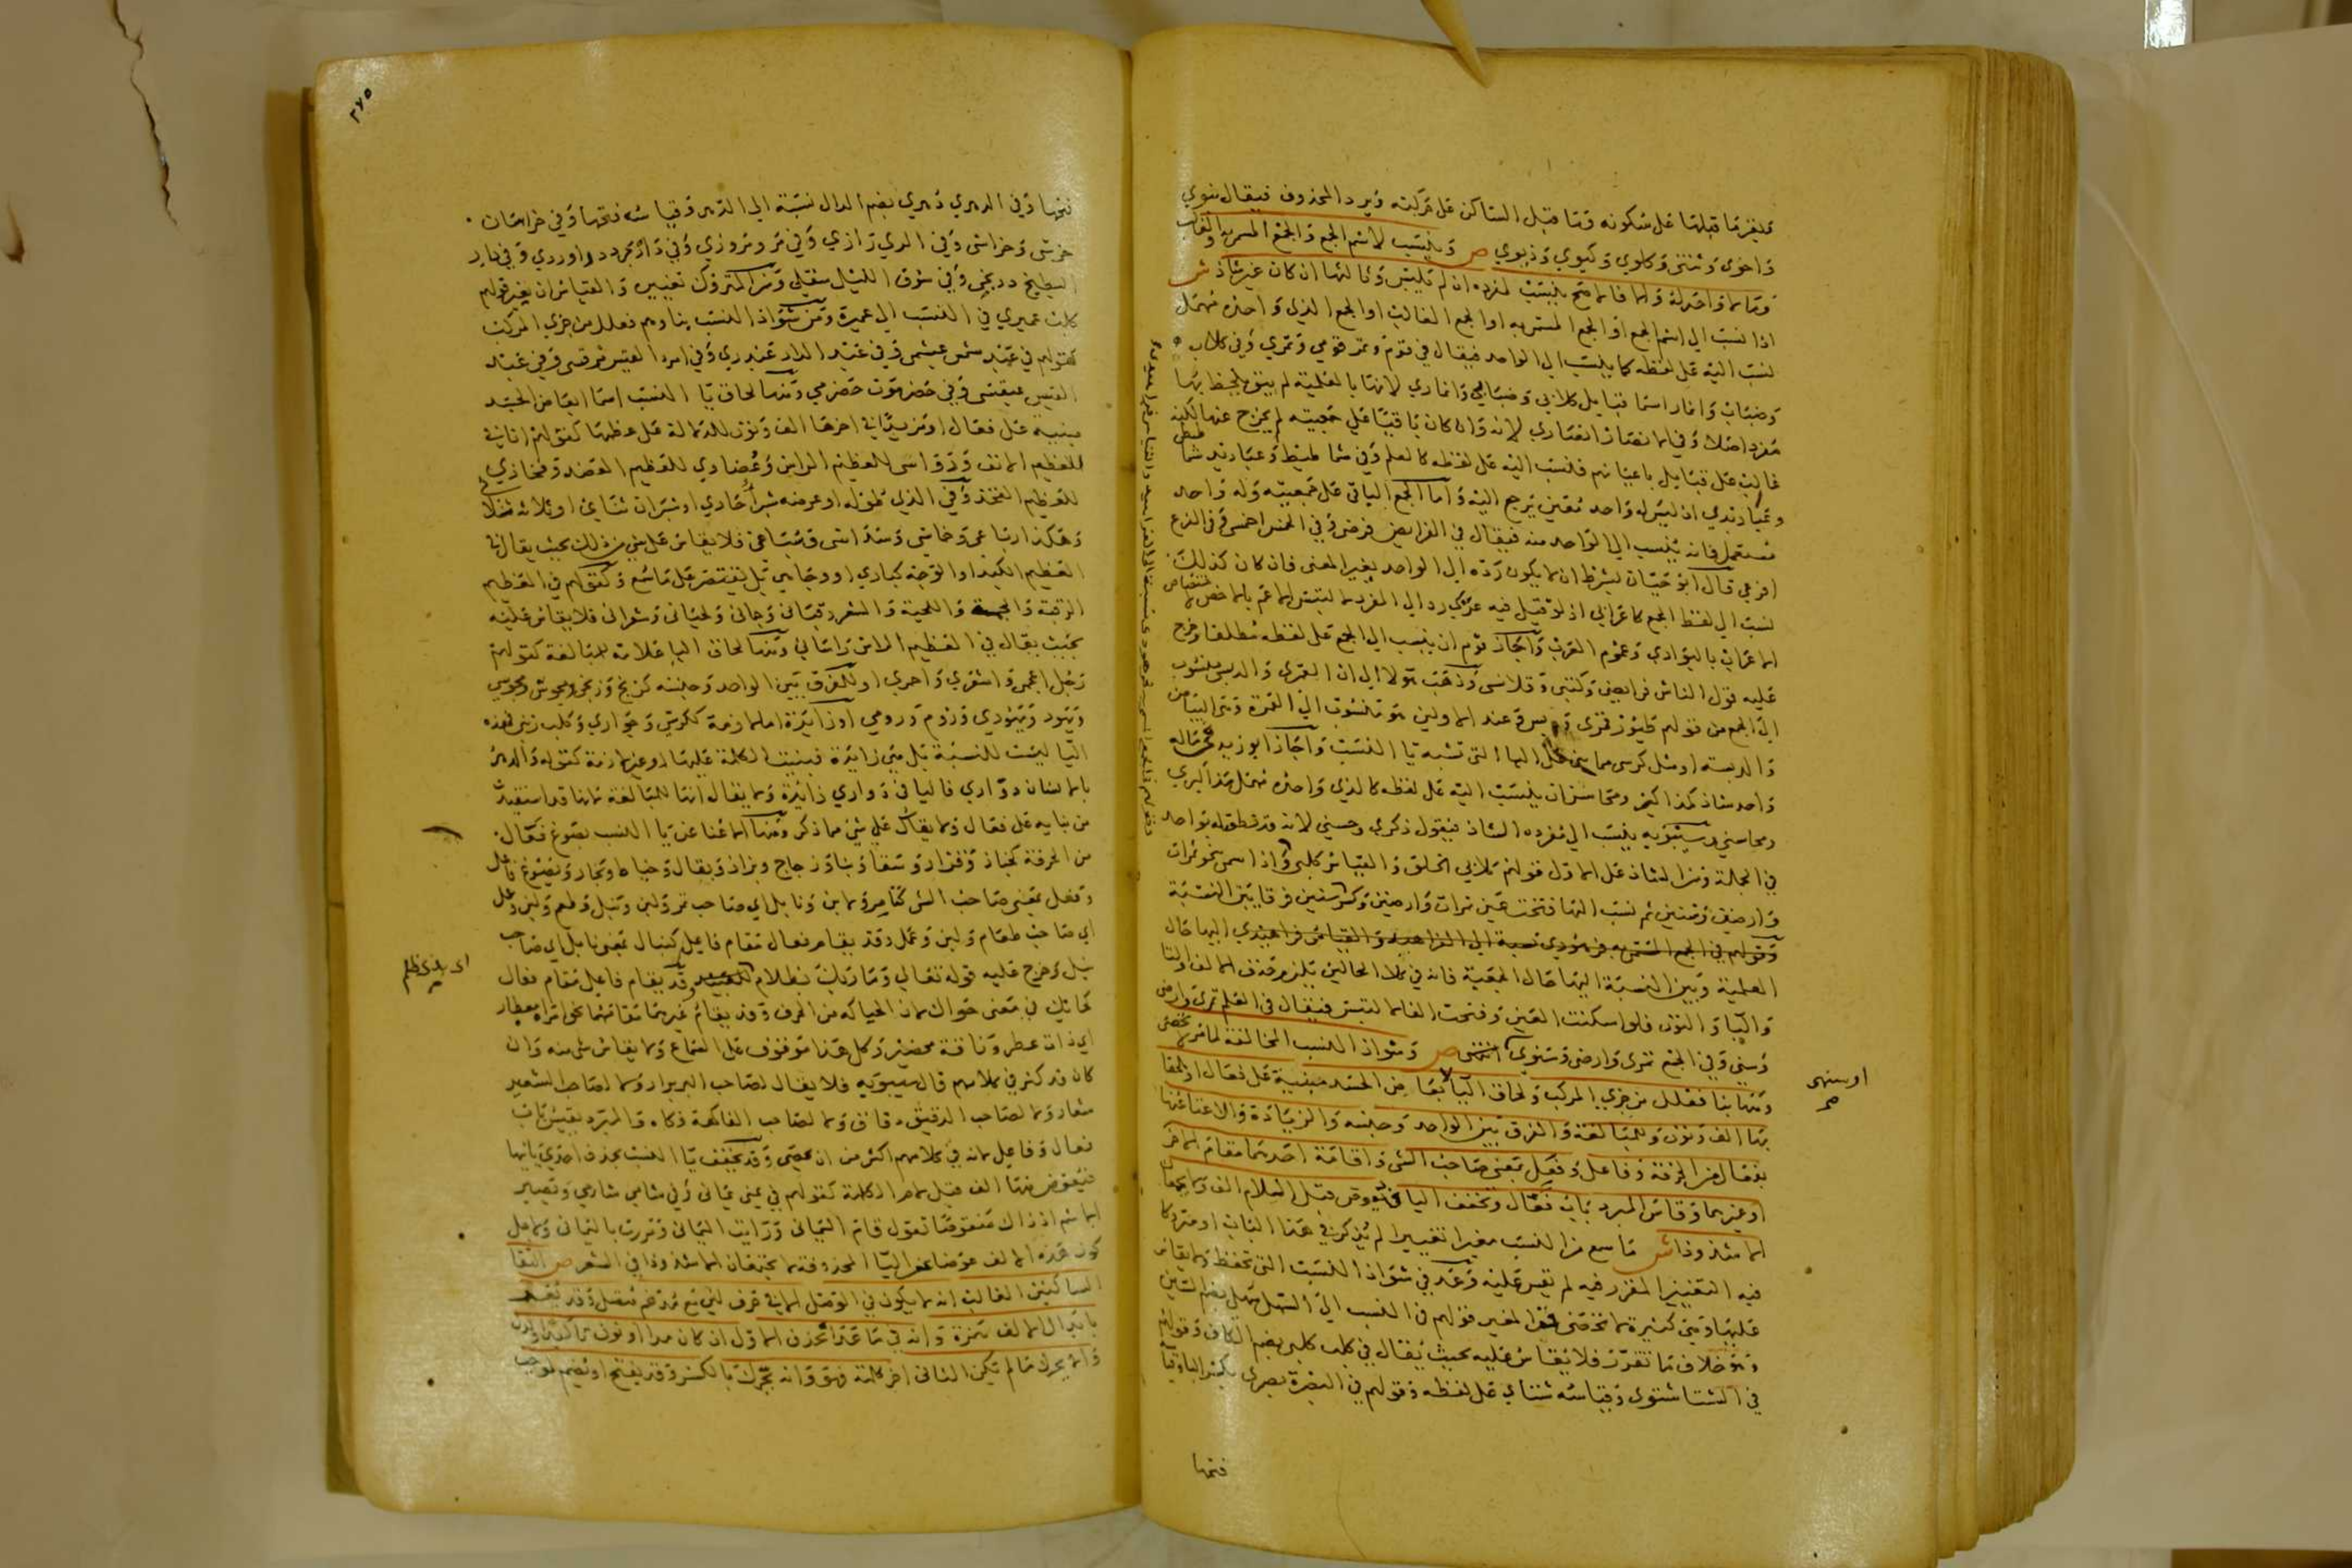 فيقر ما قبلها على سكونه وما قبل الساكن على حركته ويرد المحذوف فيقال بنوي
واخوى وثنتى وكلوي وكيوي وذيوي ص وينسب لاسم الجمع والجمع المسمى به والغالب
وما لا واحد له والا فالاصح ينسب لمفرده ان لم يلبس وثالثها ان كان غير شاذ ش
اذا نسب الى اسم الجمع او الجمع المسمى به او الجمع الغالب او الجمع الذي واحده مهمل
نسب اليه على لفظه كما ينسب الى الواحد فيقال في قوم وتمر قومي وتمري وفي كلاب
وضباب وانمار اسما قبايل كلابي وضبابي وانماري لانها بالعلمية لم يبق يلحظ بها
مفرد اصلا وفي الانصار انصاري لانه وان كان باقيا على جمعيته لم يخرج عنها لكنه
غالب على قبايل باعيانهم فنسب اليه على لفظه كالعلم وفي شماطيط وعباديد شماطيطي
وعباديدي اذ ليس له واحد معين يرجع اليه واما الجمع الباقي على جمعيته وله واحد
مستعمل فانه ينسب الى الواحد منه فيقال في الفرايض فرضي وفي الحمس احمسي وفي الفرع
افرعي قال ابو حيان بشرط ان لا يكون رده الى الواحد يغير المعنى فان كان كذلك
نسب الى لفظ الجمع كاعرابي اذ لو قيل فيه عربي رد الى المفرد لالتبس الاعم بالاخص لاختصاص
الاعراب بالبوادي وعموم العرب واجاز قوم ان ينسب الى الجمع على لفظه مطلقا وخرج
عليه قول الناس فرايضي وكتبي وقلانسي وذهب هولا الى ان القمرى والدبسي منسوب
الى الجمع من قولهم طيور قمرى ودبس وعند الاولين هو منسوب الى القمرة وهي البياض
والدبسة او مثل كرسى مما بنى على الياء التي تشبه يا النسب واجاز ابو زيد في ما له
واحد شاذ كمذاكير ومحاسن ان ينسب اليه على لفظه كالذي واحده مهمل مذاكيري
ومحاسني وسيبويه ينسب الى مفرده الشاذ فيقول ذكري وحسني لانه قد نطق له بواحد
في الجملة ومن الشاذ على الاول قولهم كلابي الخلق والقياس كلبي واذا سمى بنحو تمرات
وارضين وسنين ثم نسب اليها فتحت عين تمرات وارضين وكسر سنين فرقا بين النسبة
وقولهم في الجمع المسمى به فرهودي نسبة الى الفراهيد والقياس فراهيدي اليها حال
العلمية وبين النسبة اليها حال الجمعية فانه في كلا الحالين يلزم حذف الالف والتا
واليا والنون فلو اسكنت العين وفتحت الفا لالتبس فيقال في العلم تمرى وارضى
وسني وفي الجمع تمرى وارضى وسنوي انتهى ص وشواذ النسب المخالفة لما مر لا تحصى
ومنها بنا فعلل من جزءي المركب ولحاق اليا ابعاض الجسد مبنية على فعال او ملحقا
بها الف ونون وللمبالغة والفرق بين الواحد وجنسه والزيادة والاغنا عنها
بفعال من الحرفة وفاعل وفعل بمعنى صاحب الشي واقامة احدهما مقام الاخر
او غيرهما وقاس المبرد باب فعال وتخفف اليا فيعوض قبل اللام الف ولا يجتمعان
الا شذوذا ش ما سمع من النسب مغيرا تغييرا لم يذكر في هذا الباب او متروكا
فيه التغيير المقرر فيه لم يقس عليه وعد في شواذ النسب التي تحفظ ولا يقاس
عليها وهي كثيرة لا تحصى فمن المغير قولهم في النسب الى السهل سهلي بضم السين
وهو خلاف ما تقرر فلا يقاس عليه بحيث يقال في كلب كلبي بضم الكاف وقولهم
في الشتا شتوى وقياسه شتاي على لفظه وقولهم في البصرة بصرى بكسر البا وقياسه
فتحها
او سنهى
فتحها وفي الدهري دهري بضم الدال نسبة الى الدهر وقياسه فتحها وفي خراسان
خرسى وخراسى وفي الري رازي وفي مرو مروزي وفي دارابجرد دراوردي وفي دار
البطيخ دربخي وفي سوق الليل سقلي ومن المتروك تغييره والقياس ان يغير قولهم
عميري في النسب الى عميرة ومن شواذ النسب بناوهم فعلل من جزءي المركب
كقولهم في عبد شمس عبشمي وفي عبد الدار عبدري وفي امرء القيس مرقسى وفي عبد
القيس عبقسى وفي حضرموت حضرمي ومنها لحاق يا النسب اسما ابعاض الجسد
مبنية على فعال او مزيدا في اخرها الف ونون للدلالة على عظمها كقولهم انافي
للعظيم الانف ورواسى للعظيم الراس وعضادي للعظيم العضد وفخاذي
للعظيم الفخذ وفي الذي طوله او عرضه شبر احادي او شبران ثنايي او ثلاثة ثلاثي
وهكذا رباعي وخماسي وسداسى وسباعى فلا يقاس على شي من ذلك بحيث يقال في
العظيم الكبد او الوجه كبادي او وجاهي بل يقتصر على ما سمع وكقولهم في العظيم
الرقبة والجمة واللحية والشعر رقبانى وجمانى ولحيانى وشعرانى فلا يقاس عليه
بحيث يقال في العظيم الراس راسانى ومنها لحاق اليا علامة للمبالغة كقولهم
رجل اعجمى واشقري واحمري او للفرق بين الواحد وجنسه كزنج وزنجي ومجوس ومجوسي
ويهود ويهودي وروم ورومي او زايدة اما لازمة ككرسي وحواري وكلب زيني فهذه
اليا ليست للنسبة بل هي زايدة فبنيت الكلمة عليها او غير لازمة كقوله والدهر
بالانسان دواري فاليا في دواري زايدة ولا يقال انها للمبالغة لانها قد استفيدت
من بنايه على فعال ولا يقاس على شي مما ذكر ومنها الاغنا عن يا النسب بصوغ فعال
من الحرفة كخباز وقزاز وسقا وبنا وزجاج وبزاز وبقال وخياط ونجار وبصوغ فاعل
وفعل بمعنى صاحب الشي كتامر ولابن ونابل اي صاحب تمر ولبن ونبل وطعم ولبن وعمل
اي صاحب طعام ولبن وعمل وقد يقام فعال مقام فاعل كنبال بمعنى نابل اي صاحب
نبل وخرج عليه قوله تعالى وما ربك بظلام للعبيد وقد يقام فاعل مقام فعال
كحايك في معنى حواك لان الحياكة من الحرف وقد يقام غيرهما مقامهما نحو امراة معطار
اي ذات عطر وناقة محضير وكل هذا موقوف على السماع ولا يقاس شي منه وان
كان قد كثر في كلامهم قال سيبويه فلا يقال لصاحب البر برار ولا لصاحب الشعير
شعار ولا لصاحب الدقيق دقاق ولا لصاحب الفاكهة فكاه والمبرد يقيس باب
فعال وفاعل لانه في كلامهم اكثر من ان يحصى وقد تخفف يا النسب بحذف احدي يائيها
فيعوض منها الف قبل لام الكلمة كقولهم في يمنى يمانى وفي شامي شامي وتصير
الاسم اذ ذاك منقوصا تقول قام اليمانى ورايت اليمانى ومررت باليمانى ولاجل
كون هذه الالف عوضا عن اليا المحذوفة لا يجتمعان الا شذوذا في الشعر ص التقا
الساكنين الغالب انه لا يكون في الوصل الا في حرف لين مع مدغم متصل وقد يفر
بابدال الالف همزة وانه في ما عدا تحذف الاول ان كان مدا او نون توكيد
والا يحرك ما لم يكن الثانى اخر كلمة فهو وانه يحرك بالكسر وقد يفتح او يضم لموجب
اى بذى ظلم
٢٧٥